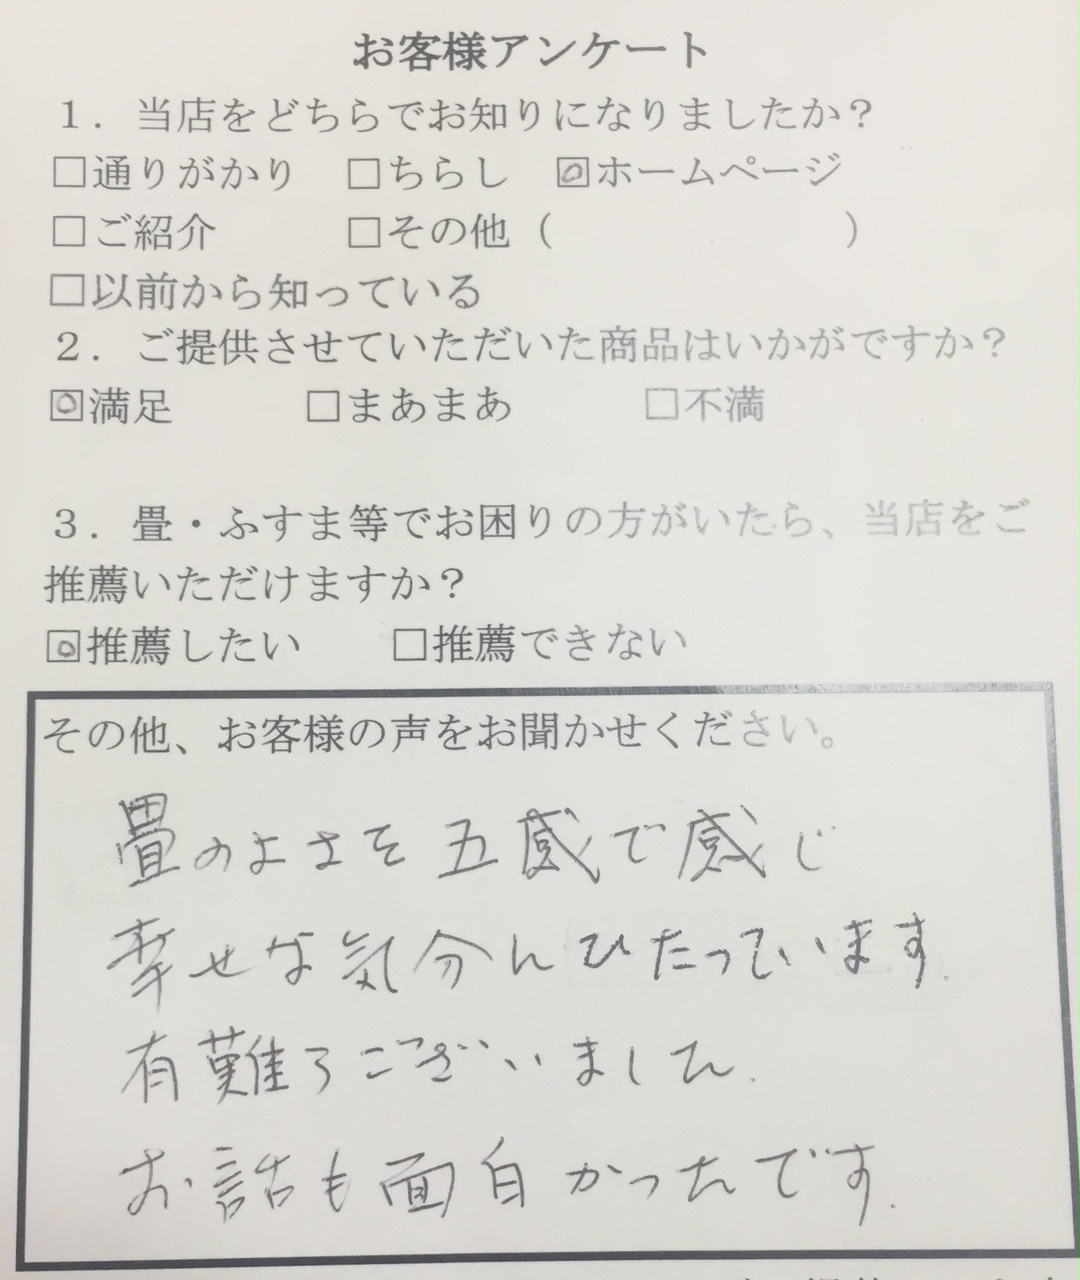 お客様アンケート
1．当店をどちらでお知りになりましたか？
□通りがかり □ちらし ☑ホームページ
□ご紹介 □その他（ ）
□以前から知っている
2．ご提供させていただいた商品はいかがですか？
☑満足 □まあまあ □不満
3．畳・ふすま等でお困りの方がいたら、当店をご
推薦いただけますか？
☑推薦したい □推薦できない
その他、お客様の声をお聞かせください。
畳のよさを五感で感じ
幸せな気分んひたっています.
有難うございました.
お話も面白かったです.